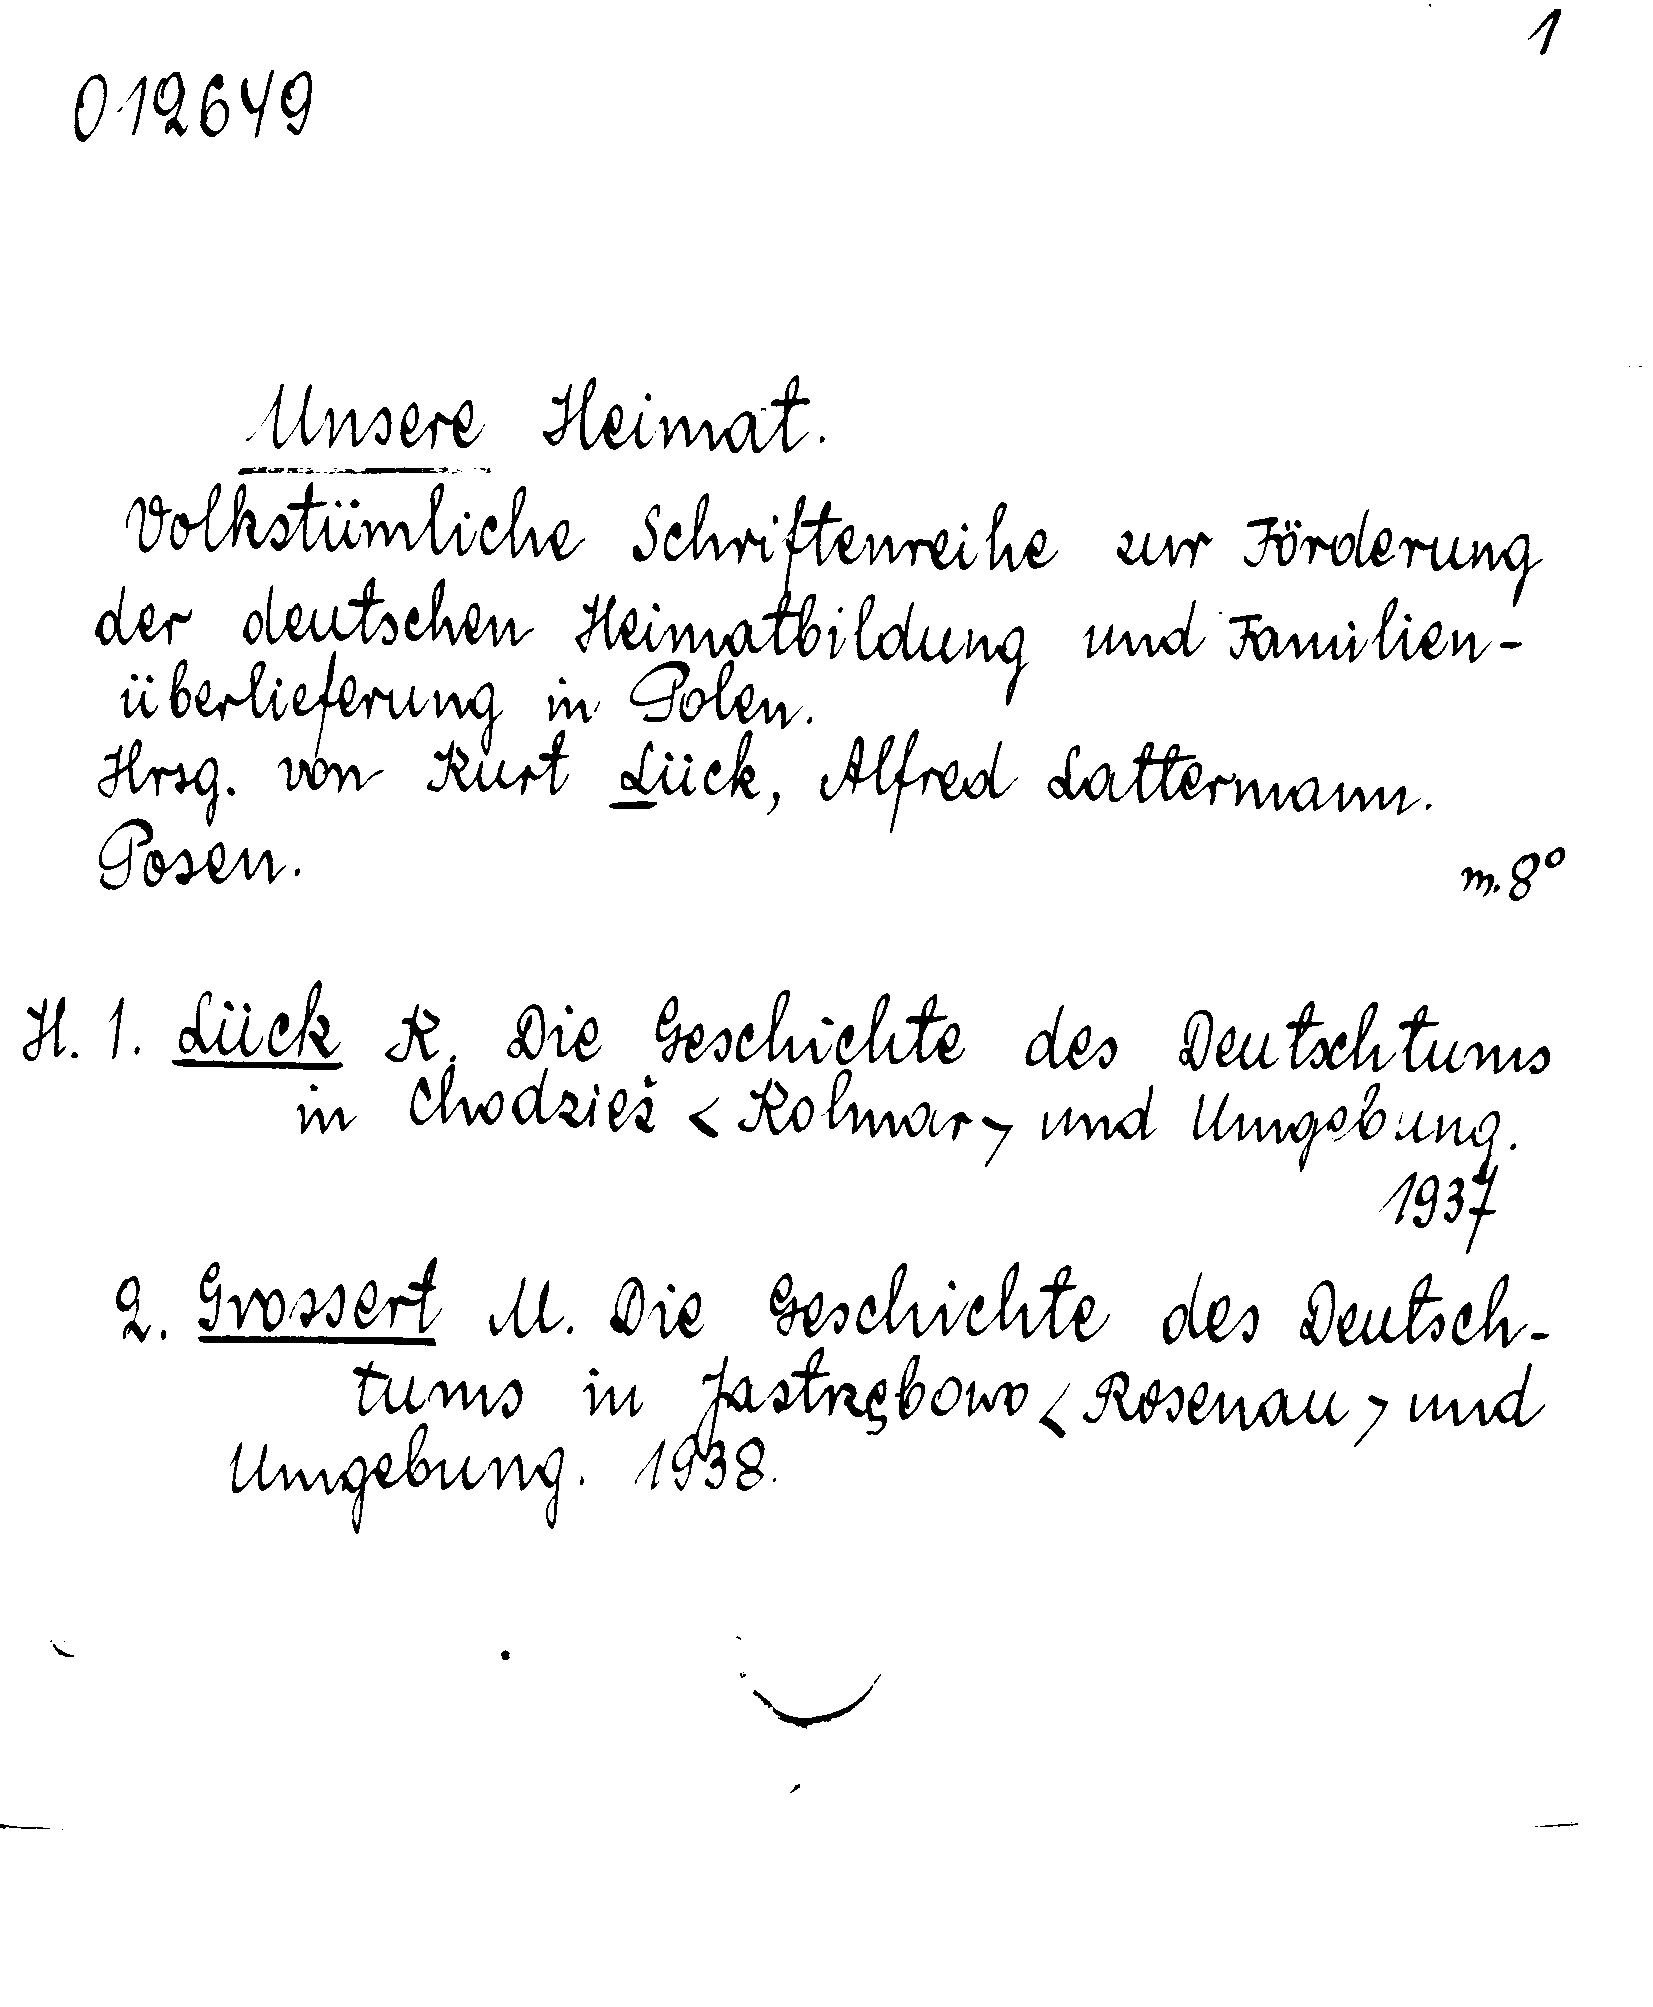 1
012649
Unsere Heimat.
Volkstümliche Schriftenreihe zur Förderung
der deutschen Heimatbildung und Familien-
überlieferung in Polen.
Hrsg. von Kurt Lück, Alfred Lattermann.
Posen.
m. 8°
H. 1. Lück K. Die Geschichte des Deutschtums
in Chodzież <Kolmar> und Umgebung.
1937
2. Grossert M. Die Geschichte des Deutsch-
tums in Jastrzębowo <Rosenau> und
Umgebung. 1938.